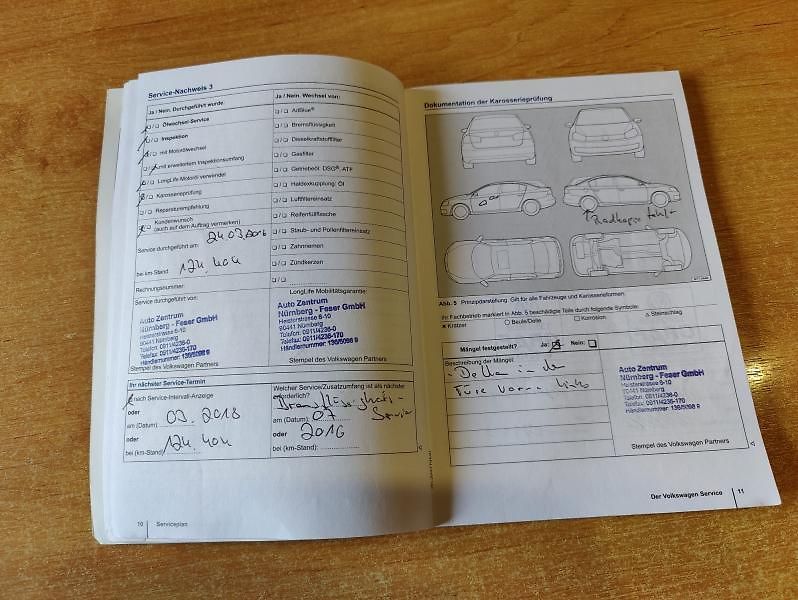 Service-Nachweis 3
Ja / Nein. Durchgeführt wurde:
Ölwechsel-Service
Inspektion
mit Motorölwechsel
mit erweitertem Inspektionsumfang
LongLife-Motoröl verwendet
Karosserieprüfung
Reparaturempfehlung
Kundenwunsch
(auch auf dem Auftrag vermerken)
Service durchgeführt am: 24.03.2016
bei km-Stand: 124.404
Rechnungsnummer:
Service durchgeführt von:
Auto Zentrum
Nürnberg - Feser GmbH
Heisterstrasse 6-10
90441 Nürnberg
Telefon: 0911/4236-0
Telefax: 0911/4236-170
Händlernummer: 136/5098 9
Stempel des Volkswagen Partners
Ja / Nein. Wechsel von:
AdBlue®
Bremsflüssigkeit
Dieselkraftstofffilter
Gasfilter
Getriebeöl: DSG®, ATF
Haldexkupplung: Öl
Luftfiltereinsatz
Reifenfüllflasche
Staub- und Pollenfiltereinsatz
Zahnriemen
Zündkerzen
LongLife Mobilitätsgarantie:
Auto Zentrum
Nürnberg - Feser GmbH
Heisterstrasse 6-10
90441 Nürnberg
Telefon: 0911/4236-0
Telefax: 0911/4236-170
Händlernummer: 136/5098 9
Stempel des Volkswagen Partners
Ihr nächster Service-Termin
nach Service-Intervall-Anzeige
oder
am (Datum): 03.2018
oder
bei (km-Stand): 124.404
Welcher Service/Zusatzumfang ist als nächster
erforderlich? Bremsflüssigkeits-
Service
am (Datum): 07
oder 2016
bei (km-Stand):
10 Serviceplan
Dokumentation der Karosserieprüfung
Radkappe fehlt
Abb. 5 Prinzipdarstellung. Gilt für alle Fahrzeuge und Karosserieformen.
Ihr Fachbetrieb markiert in Abb. 5 beschädigte Teile durch folgende Symbole:
× Kratzer ○ Beule/Delle □ Korrosion △ Steinschlag
Mängel festgestellt? Ja: Nein:
Beschreibung der Mängel:
- Delle in der
Türe vorne links
Auto Zentrum
Nürnberg - Feser GmbH
Heisterstrasse 6-10
90441 Nürnberg
Telefon: 0911/4236-0
Telefax: 0911/4236-170
Händlernummer: 136/5098 9
Stempel des Volkswagen Partners
Der Volkswagen Service 11